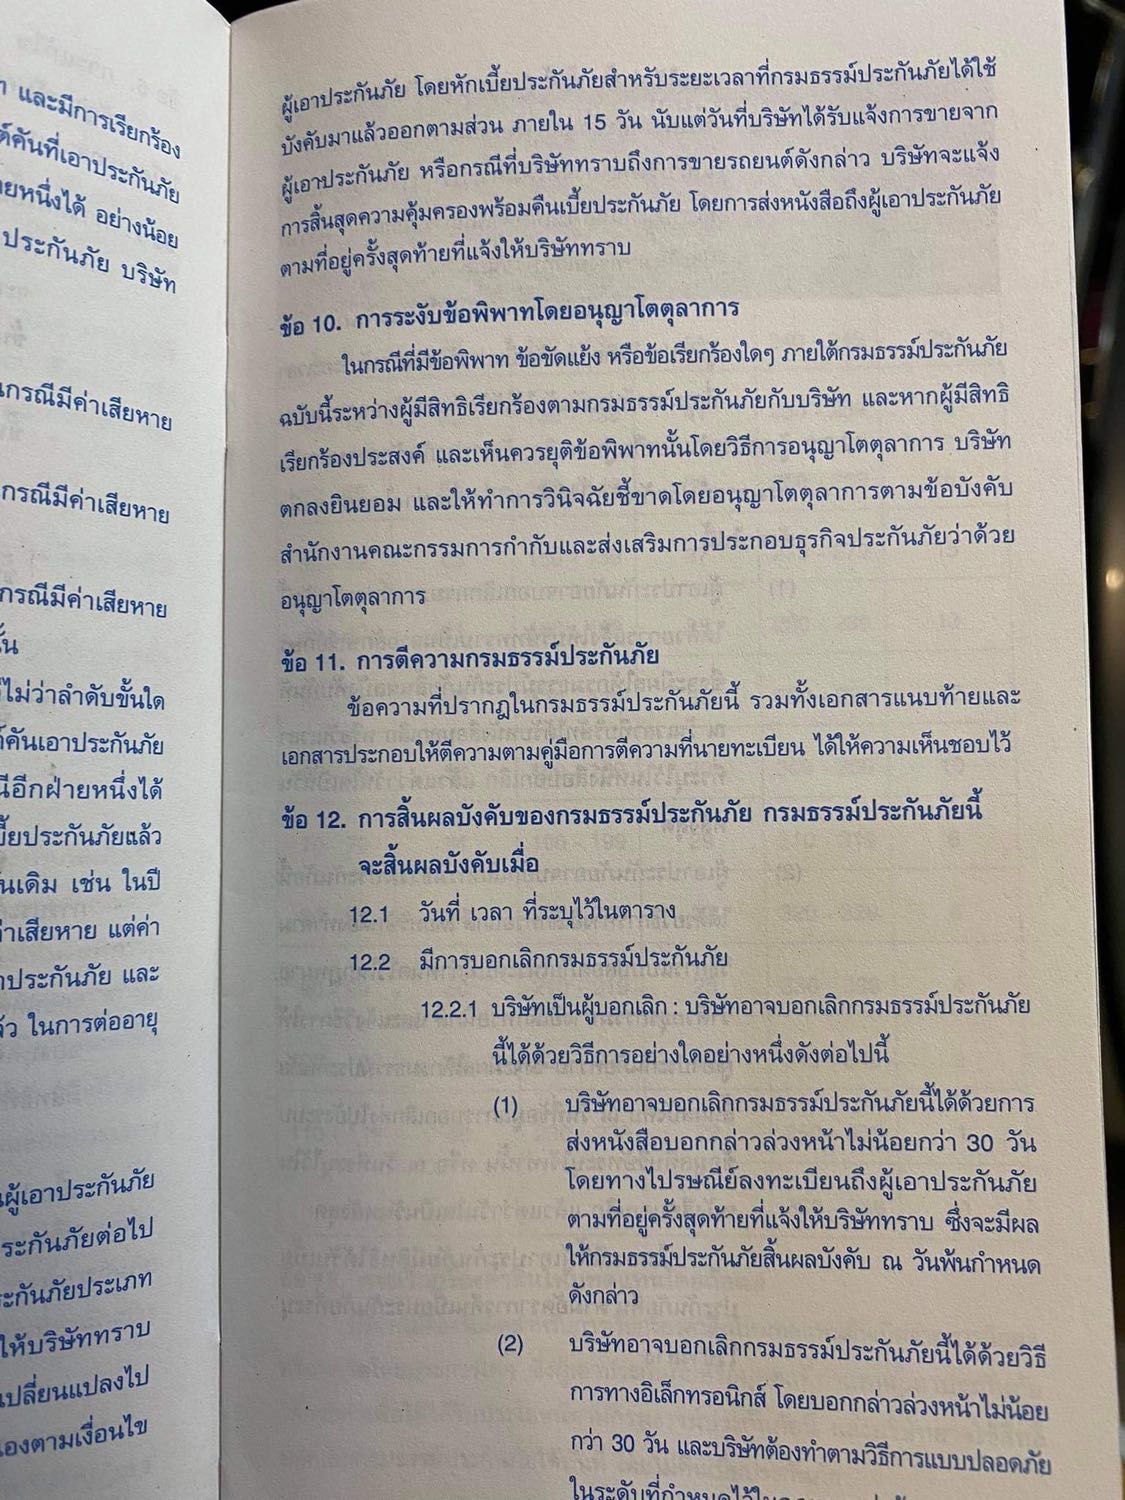 และมีการเรียกร้อง
คันที่เอาประกันภัย
หนึ่งได้ อย่างน้อย
ประกันภัย บริษัท
กรณีมีค่าเสียหาย
กรณีมีค่าเสียหาย
กรณีมีค่าเสียหาย
ไม่ว่าลำดับขั้นใด
คันเอาประกันภัย
อีกฝ่ายหนึ่งได้
ประกันภัยแล้ว
เดิม เช่น ในปี
ค่าเสียหาย แต่ค่า
ประกันภัย และ
ในการต่ออายุ
ผู้เอาประกันภัย
ประกันภัยต่อไป
ประกันภัยประเภท
ให้บริษัททราบ
เปลี่ยนแปลงไป
ตามเงื่อนไข
ผู้เอาประกันภัย โดยหักเบี้ยประกันภัยสำหรับระยะเวลาที่กรมธรรม์ประกันภัยได้ใช้
บังคับมาแล้วออกตามส่วน ภายใน 15 วัน นับแต่วันที่บริษัทได้รับแจ้งการขายจาก
ผู้เอาประกันภัย หรือกรณีที่บริษัททราบถึงการขายรถยนต์ดังกล่าว บริษัทจะแจ้ง
การสิ้นสุดความคุ้มครองพร้อมคืนเบี้ยประกันภัย โดยการส่งหนังสือถึงผู้เอาประกันภัย
ตามที่อยู่ครั้งสุดท้ายที่แจ้งให้บริษัททราบ
ข้อ 10. การระงับข้อพิพาทโดยอนุญาโตตุลาการ
ในกรณีที่มีข้อพิพาท ข้อขัดแย้ง หรือข้อเรียกร้องใดๆ ภายใต้กรมธรรม์ประกันภัย
ฉบับนี้ระหว่างผู้มีสิทธิเรียกร้องตามกรมธรรม์ประกันภัยกับบริษัท และหากผู้มีสิทธิ
เรียกร้องประสงค์ และเห็นควรยุติข้อพิพาทนั้นโดยวิธีการอนุญาโตตุลาการ บริษัท
ตกลงยินยอม และให้ทำการวินิจฉัยชี้ขาดโดยอนุญาโตตุลาการตามข้อบังคับ
สำนักงานคณะกรรมการกำกับและส่งเสริมการประกอบธุรกิจประกันภัยว่าด้วย
อนุญาโตตุลาการ
ข้อ 11. การตีความกรมธรรม์ประกันภัย
ข้อความที่ปรากฎในกรมธรรม์ประกันภัยนี้ รวมทั้งเอกสารแนบท้ายและ
เอกสารประกอบให้ตีความตามคู่มือการตีความที่นายทะเบียน ได้ให้ความเห็นชอบไว้
ข้อ 12. การสิ้นผลบังคับของกรมธรรม์ประกันภัย กรมธรรม์ประกันภัยนี้
จะสิ้นผลบังคับเมื่อ
12.1 วันที่ เวลา ที่ระบุไว้ในตาราง
12.2 มีการบอกเลิกกรมธรรม์ประกันภัย
12.2.1 บริษัทเป็นผู้บอกเลิก : บริษัทอาจบอกเลิกกรมธรรม์ประกันภัย
นี้ได้ด้วยวิธีการอย่างใดอย่างหนึ่งดังต่อไปนี้
(1) บริษัทอาจบอกเลิกกรมธรรม์ประกันภัยนี้ได้ด้วยการ
ส่งหนังสือบอกกล่าวล่วงหน้าไม่น้อยกว่า 30 วัน
โดยทางไปรษณีย์ลงทะเบียนถึงผู้เอาประกันภัย
ตามที่อยู่ครั้งสุดท้ายที่แจ้งให้บริษัททราบ ซึ่งจะมีผล
ให้กรมธรรม์ประกันภัยสิ้นผลบังคับ ณ วันพ้นกำหนด
ดังกล่าว
(2) บริษัทอาจบอกเลิกกรมธรรม์ประกันภัยนี้ได้ด้วยวิธี
การทางอิเล็กทรอนิกส์ โดยบอกกล่าวล่วงหน้าไม่น้อย
กว่า 30 วัน และบริษัทต้องทำตามวิธีการแบบปลอดภัย
ในระดับที่กำหนดไว้ใน